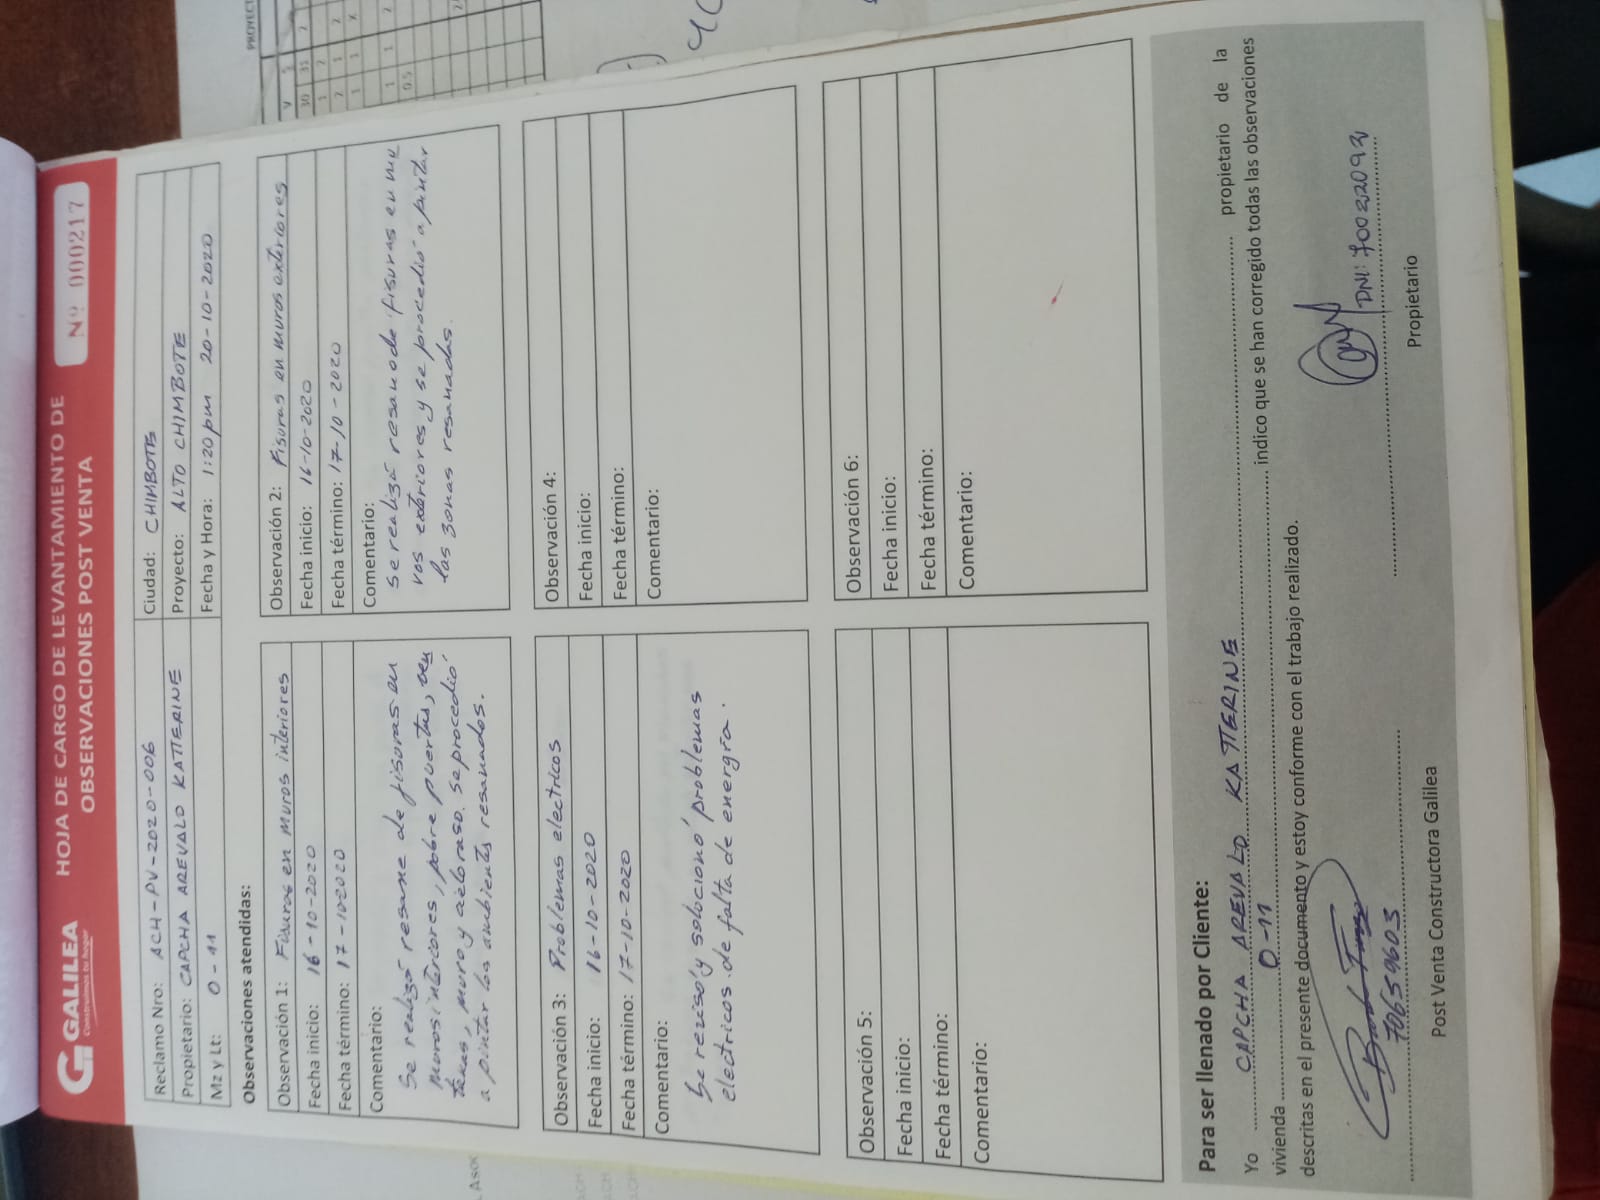 GALILEA
Construimos tu hogar
HOJA DE CARGO DE LEVANTAMIENTO DE
OBSERVACIONES POST VENTA
Nº 000217
Reclamo Nro: ACH-PV-2020-006
Ciudad: CHIMBOTE
Propietario: CAPCHA AREVALO KATTERINE
Proyecto: ALTO CHIMBOTE
Mz y Lt: O-11
Fecha y Hora: 1:20pm 20-10-2020
Observaciones atendidas:
Observación 1: Fisuras en muros interiores
Fecha inicio: 16-10-2020
Fecha término: 17-102020
Comentario:
Se realizó resane de fisuras en
muros interiores, sobre puertas, ven
tanas, muro y cielo raso. Se procedió
a pintar los ambientes resanados.
Observación 2: Fisuras en muros exteriores
Fecha inicio: 16-10-2020
Fecha término: 17-10-2020
Comentario:
se realizó resano de fisuras en mu
ros exteriores y se procedio a pintar
las zonas resanadas.
Observación 3: Problemas electricos
Fecha inicio: 16-10-2020
Fecha término: 17-10-2020
Comentario:
Se revisó y solocionó problemas
electricos de falta de energía.
Observación 4:
Fecha inicio:
Fecha término:
Comentario:
Observación 5:
Fecha inicio:
Fecha término:
Comentario:
Observación 6:
Fecha inicio:
Fecha término:
Comentario:
Para ser llenado por Cliente:
Yo CAPCHA AREVALO KATTERINE propietario de la
vivienda O-11 indico que se han corregido todas las observaciones
descritas en el presente documento y estoy conforme con el trabajo realizado.
70659603
Post Venta Constructora Galilea
DNI: 70022092
Propietario